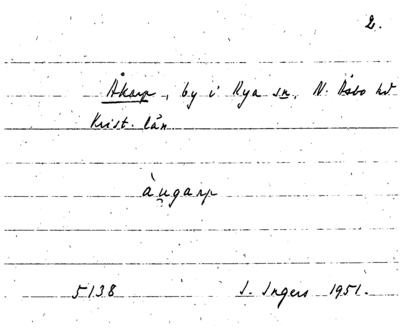 2.
Åkarp, by i Rya sn, N. Åsbo hd
Krist. län
àu̯garp
5138 I. Ingers 1951.